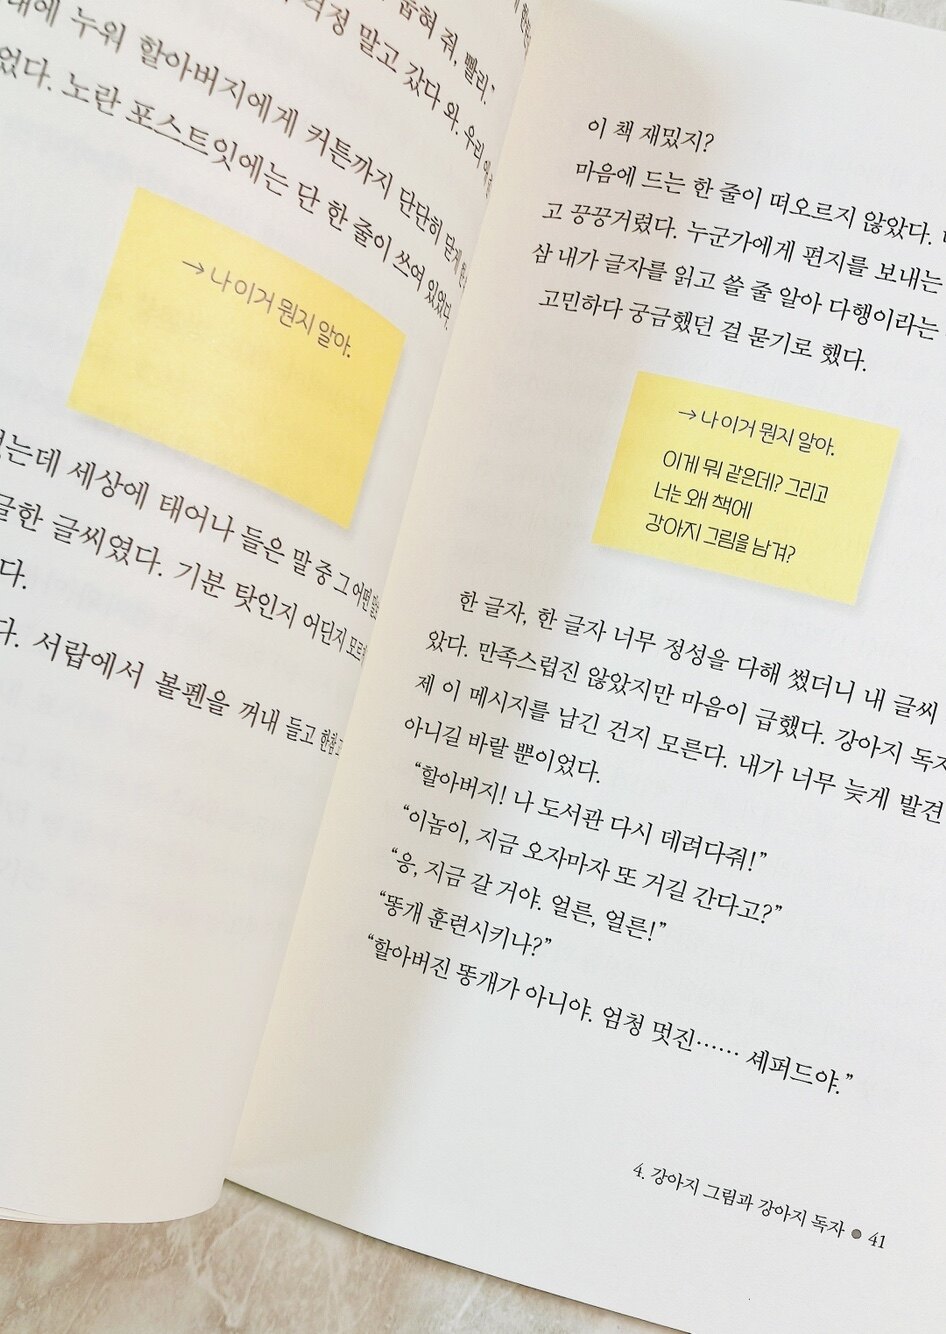 눕혀 줘, 빨리."
걱정 말고 갔다 와. 우리
누워 할아버지에게 커튼까지 단단히 닫게
었다. 노란 포스트잇에는 단 한 줄이 쓰여 있었다.
→ 나 이거 뭔지 알아.
는데 세상에 태어나 들은 말 중 그 어떤
글한 글씨였다. 기분 탓인지 어딘지 모르
다.
다. 서랍에서 볼펜을 꺼내 들고 한참
이 책 재밌지?
마음에 드는 한 줄이 떠오르지 않았다.
고 끙끙거렸다. 누군가에게 편지를 보내는
삼 내가 글자를 읽고 쓸 줄 알아 다행이라는
고민하다 궁금했던 걸 묻기로 했다.
→ 나 이거 뭔지 알아.
이게 뭐 같은데? 그리고
너는 왜 책에
강아지 그림을 남겨?
한 글자, 한 글자 너무 정성을 다해 썼더니 내 글씨
았다. 만족스럽진 않았지만 마음이 급했다. 강아지 독자
제 이 메시지를 남긴 건지 모른다. 내가 너무 늦게 발견
아니길 바랄 뿐이었다.
"할아버지! 나 도서관 다시 데려다줘!"
"이놈이, 지금 오자마자 또 거길 간다고?"
"응, 지금 갈 거야. 얼른, 얼른!"
"똥개 훈련시키나?"
"할아버진 똥개가 아니야. 엄청 멋진…… 셰퍼드야."
4. 강아지 그림과 강아지 독자 ● 41